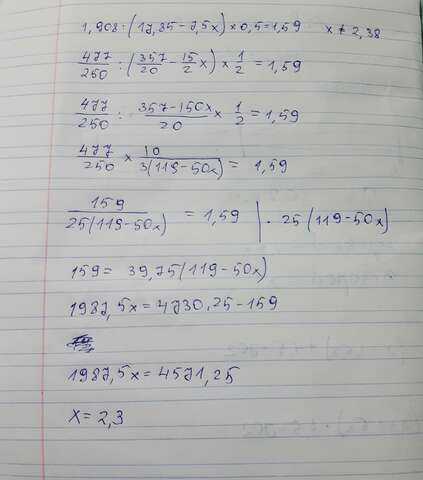 1,908 : (17,85 - 7,5x) × 0,5 = 1,59 x ≠ 2,38
477/250 : (357/20 - 15/2 x) × 1/2 = 1,59
477/250 : 357-150x/20 × 1/2 = 1,59
477/250 × 10/3(119-50x) = 1,59
159/25(119-50x) = 1,59 | · 25(119-50x)
159 = 39,75(119-50x)
1987,5x = 4730,25 - 159
1987,5x = 4571,25
x = 2,3